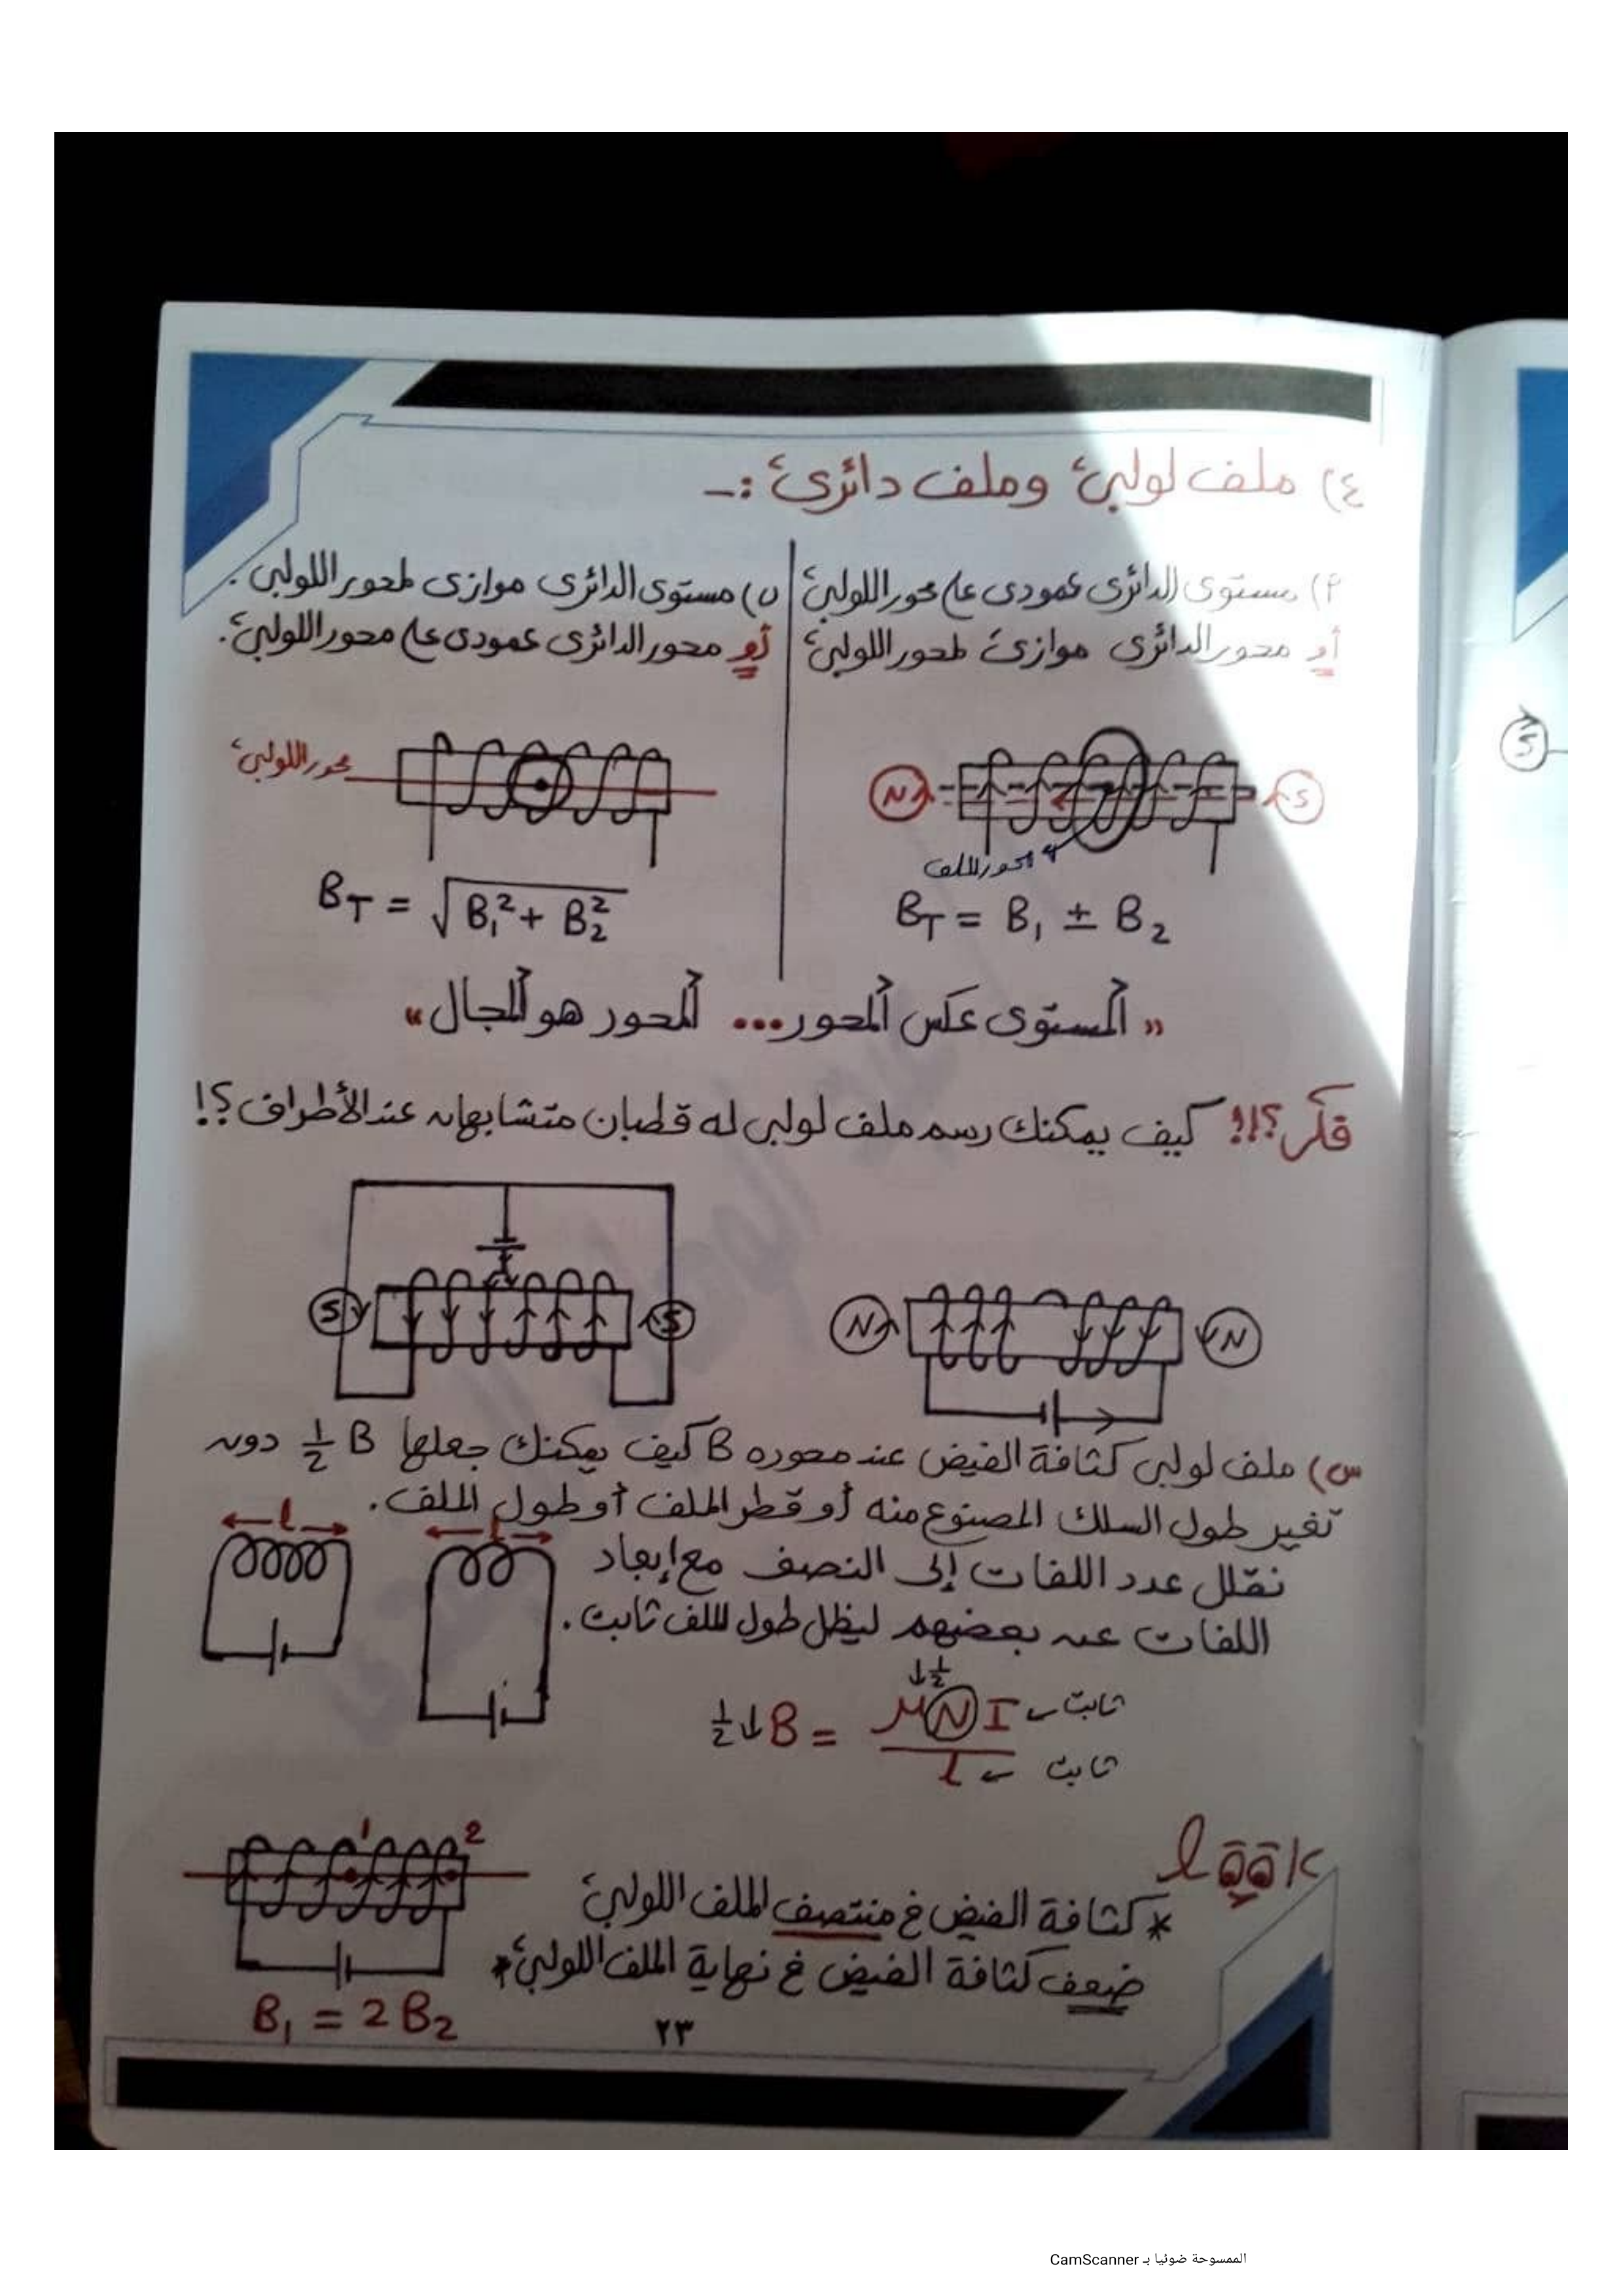 ٤) ملف لولبيء وملف دائريء :-
أ) مستوى الدائرى عمودى على محور اللولبيء
أو محور الدائرى موازىء لمحور اللولبيء
ب) مستوى الدائرى موازى لمحور اللولبى .
أو محور الدائرى عمودى على محور اللولبيء.
N
S
محور الملف
B_T = B₁ ± B₂
محور اللولبيء
B_T = √(B₁² + B₂²)
" المستوى عكس المحور... المحور هو المجال "
فكر؟!! كيف يمكنك رسم ملف لولبى له قطبان متشابهان عند الأطراف؟!
N
N
S
S
س) ملف لولبى كثافة الفيض عند محوره B كيف يمكنك جعلها ½ B دون
تغير طول السلك المصنوع منه أو قطر الملف أو طول الملف.
نقلل عدد اللفات إلى النصف مع إبعاد
اللفات عن بعضهم ليظل طول الملف ثابت.
l
l
↓½
½ ↓ B = μ N I ← ثابت
l ← ثابت
look
* كثافة الفيض في منتصف الملف اللولبيء
ضعف كثافة الفيض في نهاية الملف اللولبيء *
1 2
B₁ = 2 B₂
٢٣
S
الممسوحة ضوئيا بـ CamScanner